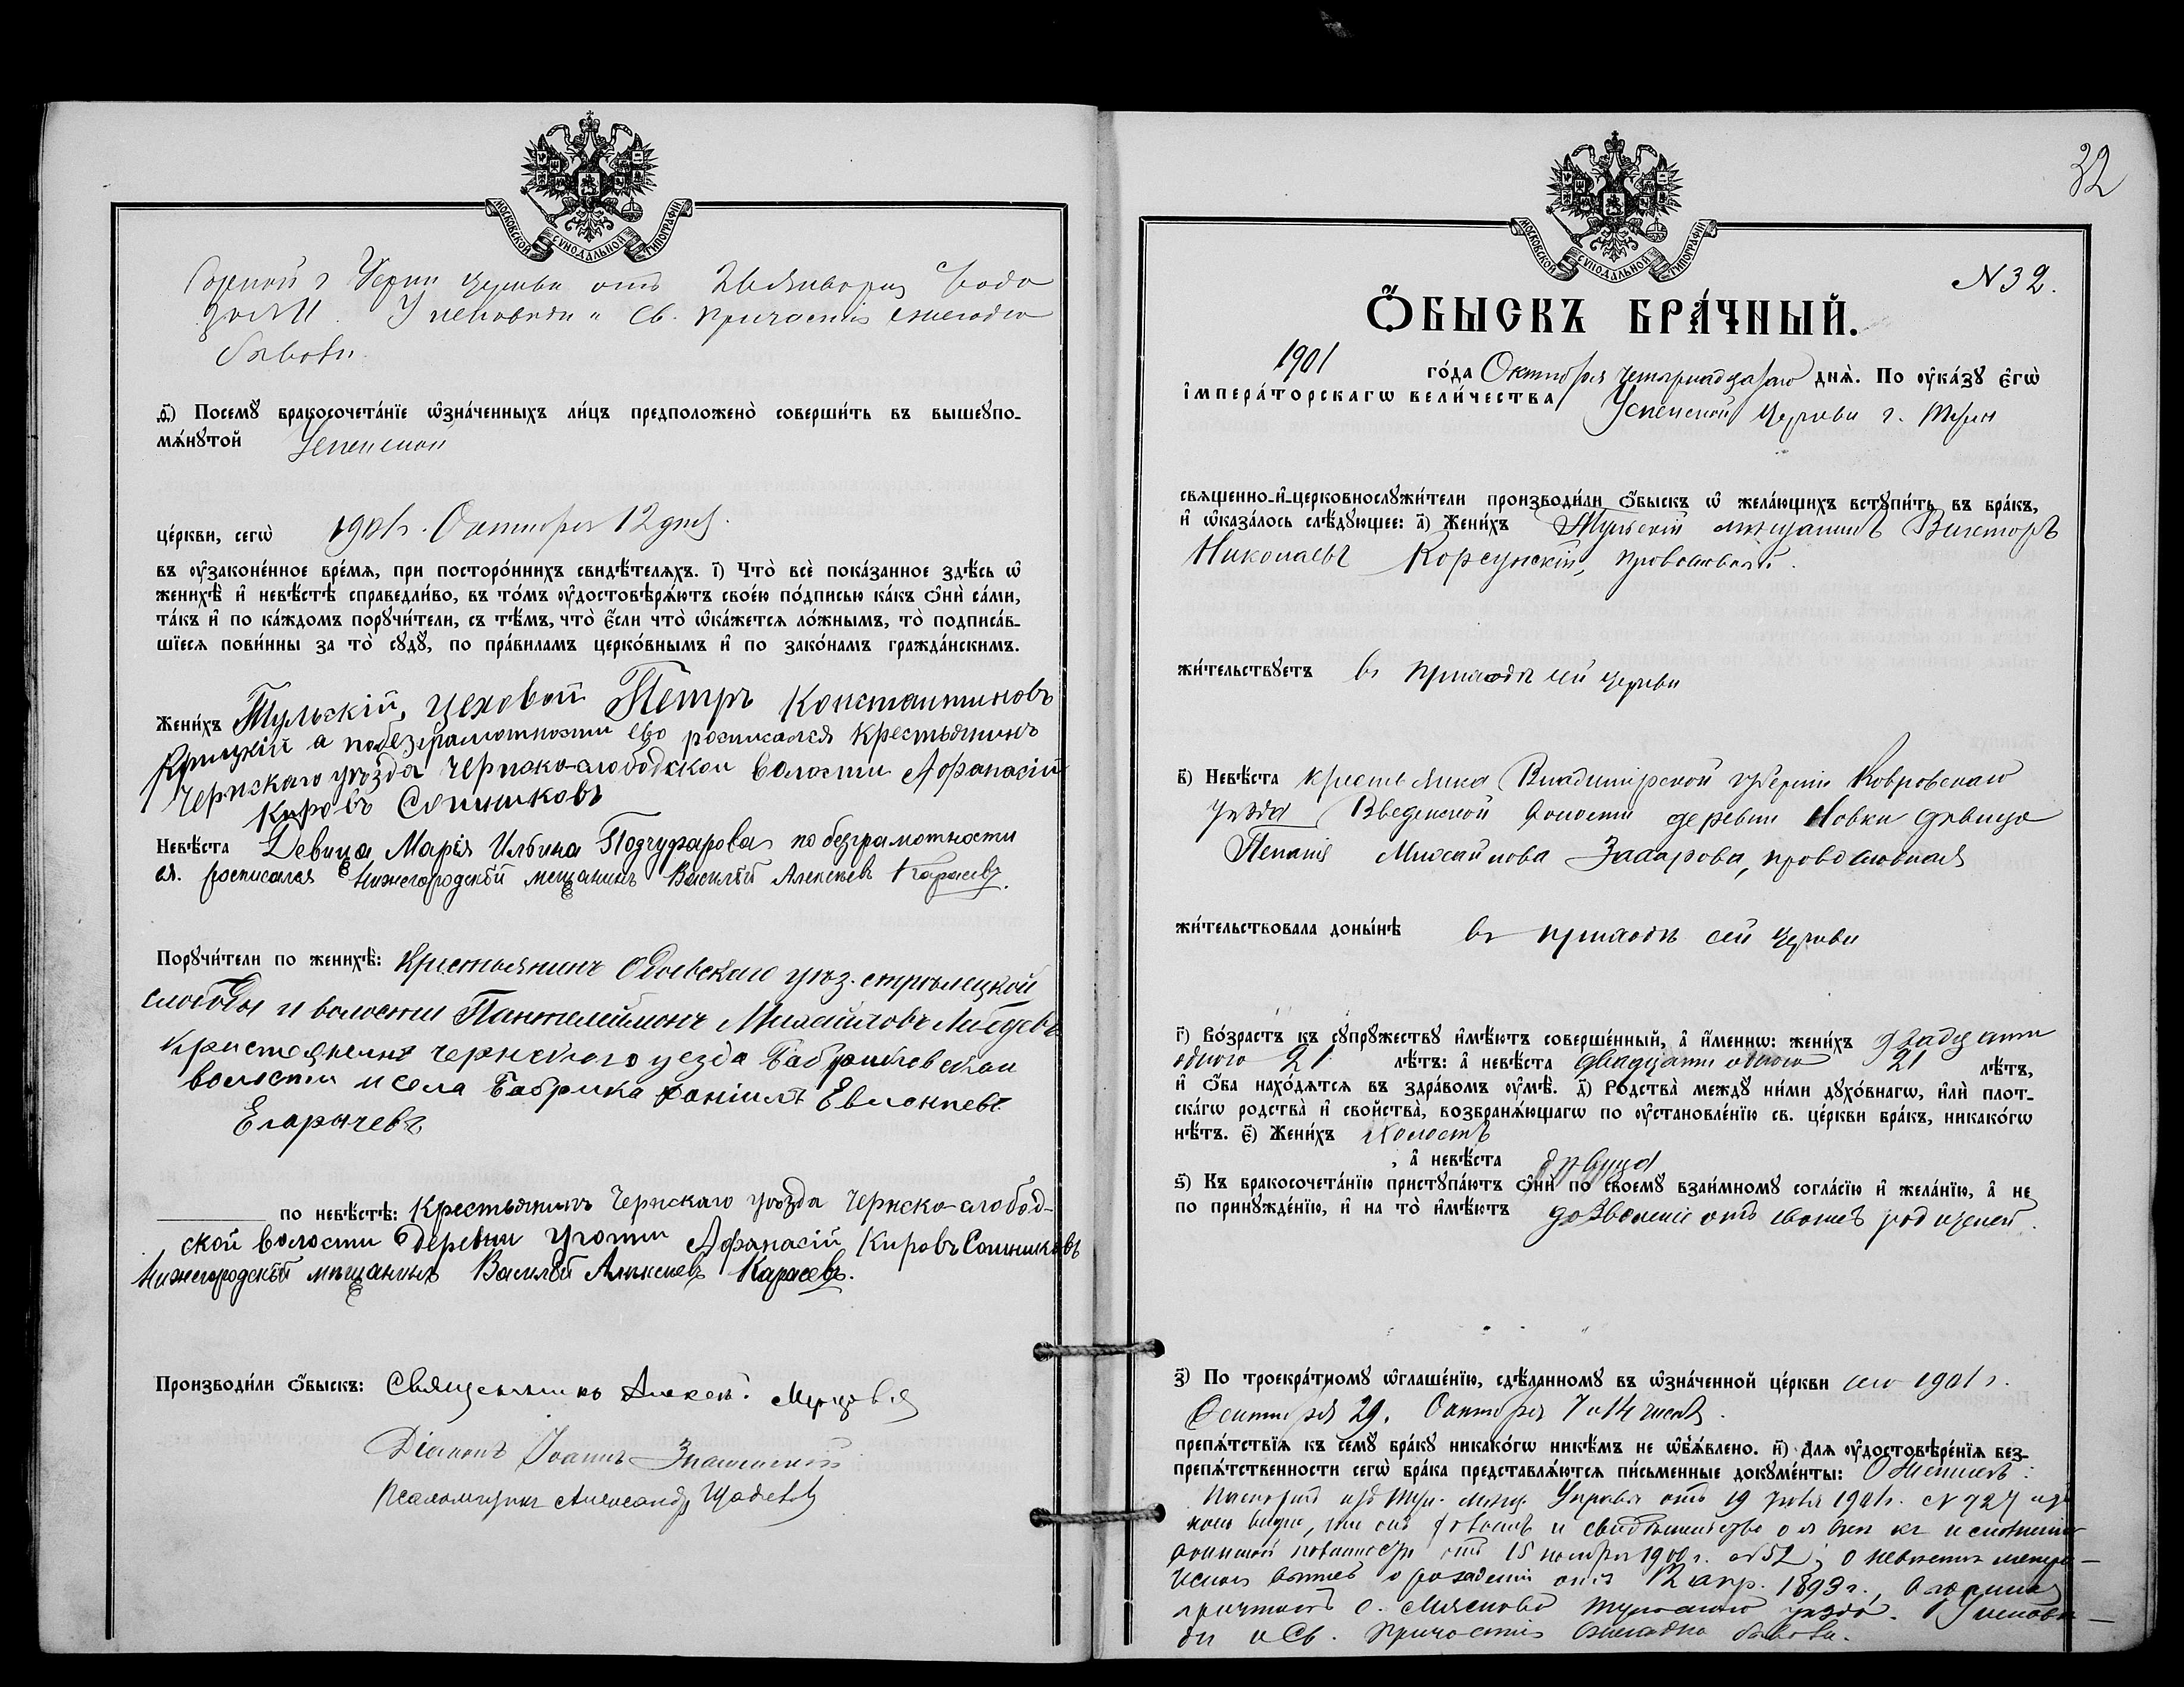 МОСКОВСКОЙ СУНОДАЛЬНОЙ ТИПОГРАФІИ
г Черни церкви отъ года
за №11. У исповѣди и Св. Причастія ежегодно
бывали.
д҃і) Посемꙋ бракосочета́нїе ѡзна́ченныхъ ли́цъ предположено̀ соверши́ть въ вышеꙋпо-
мѧ́нꙋтой Успенской
це́ркви, сегѡ̀ 1901 г. Октября 12 дня.
въ ᲂу҆зако́ненное вре́мѧ, при посторо́ннихъ свидѣ́телѧхъ. і҃) Что̀ всѐ пока́занное здѣ́сь ѡ҆
женихѣ̀ и҆ невѣ́стѣ справедли́во, въ то́мъ ᲂу҆достовѣрѧ́ютъ свое́ю по́дписью ка́къ ѻ҆нѝ са́ми,
та́къ и҆ по ка́ждомъ порꙋчи́тели, съ тѣ́мъ, что̀ є҆́сли что̀ ѡ҆ка́жетсѧ ло́жнымъ, то̀ подписа́в-
шїесѧ пови́нны за то̀ сꙋдꙋ̀, по пра́виламъ церко́внымъ и҆ по зако́намъ гражда́нскимъ.
Жени́хъ Тульскій, цеховой Петръ Константиновъ
а по безграмотности его росписался крестьянинъ
Чернскаго уѣзда Чернско-слободской волости Афанасій
Кировъ Сотниковъ
Невѣ́ста Девица Марія Ильина Подчуфарова по безграмотности
ея росписался Нижегородскій мещанинъ Василій Алексѣевъ Карасевъ.
Порꙋчи́тели по женихѣ̀: Крестьянинъ Одоевскаго уѣз. стрѣлецкой
слободы и волости Пантелеймонъ Михайловъ Лебедевъ
Крестьянинъ чернского уезда
волости и села Егорычевъ
по невѣ́стѣ: Крестьянинъ Чернскаго уѣзда Чернско-слобод-
ской волости деревни Афанасій Кировъ Сотниковъ
Нижегородскій мѣщанинъ Василій Алексѣевъ Карасевъ.
Производи́ли ѻ҆́быскъ: Священникъ Алексѣй
Діаконъ Іоаннъ Знаменскій
Псаломщикъ Александръ
32
МОСКОВСКОЙ СУНОДАЛЬНОЙ ТИПОГРАФІИ
N 32.
Ѻ҆́БЫСКЪ БРА́ЧНЫЙ.
1901 го́да Октября четырнадцатаго днѧ̀. По ᲂу҆ка́зꙋ є҆гѡ̀
і҆мпера́торскагѡ вели́чества Успенской церкви г. Черни
свѧщенно-и҆-церковнослꙋжи́тели производи́ли ѻ҆́быскъ ѡ҆ жела́ющихъ встꙋпи́ть въ бра́къ,
и҆ ѡ҆каза́лось слѣ́дꙋющее: а҃) Жени́хъ Тульскій мѣщанинъ Викторъ
Николаевъ Корсунскій, православный.
жи́тельствꙋетъ въ приходѣ сей церкви
в҃) Невѣ́ста крестьянка Владимірской губерніи Ковровскаго
уѣзда Введенской волости деревни Новки дѣвица
Михайлова Захарова, православная
жи́тельствовала доны́нѣ въ приходѣ сей церкви
г҃) Во́зрастъ къ сꙋпрꙋ́жествꙋ и҆мѣ́ютъ соверше́нный, а҆ и҆́меннѡ: жени́хъ двадцати
одного 21 лѣ́тъ: а҆ невѣ́ста двадцати одного 21 лѣ́тъ,
и҆ ѻ҆́ба нахо́дѧтсѧ въ здра́вомъ ᲂу҆мѣ̀. д҃) Родства̀ междꙋ ни́ми дꙋхо́внагѡ, и҆лѝ плот-
ска́гѡ родства̀ и҆ свойства̀, возбранѧ́ющагѡ по ᲂу҆становле́нїю св. це́ркви бра́къ, никако́гѡ
нѣ́тъ. є҃) Жени́хъ Холостъ
, а҆ невѣ́ста дѣвица
ѕ҃) Къ бракосочета́нїю пристꙋпа́ютъ ѻ҆нѝ по своемꙋ̀ взаи́мномꙋ согла́сїю и҆ жела́нїю, а҆ не
по принꙋжде́нїю, и҆ на то̀ и҆мѣ́ютъ дозволеніе отъ своихъ родителей.
з҃) По троекра́тномꙋ ѡ҆глаше́нїю, сдѣ́ланномꙋ въ ѡ҆зна́ченной це́ркви сего 1901 г.
Сентября 29, Октября 7 и 14 чиселъ.
препѧ́тствїѧ къ семꙋ̀ бра́кꙋ никако́гѡ никѣ́мъ не ѡ҆б̾ѧ́влено. и҃) Для ᲂу҆достовѣре́нїѧ без-
препѧ́тственности сегѡ̀ бра́ка представлѧ́ютсѧ пи́сьменные докꙋме́нты: О женихѣ:
Паспортъ изъ Тул. мѣщ. Управы отъ 19 1901 г. № 727 изъ
коего видно, что онъ холостъ и свидѣтельство о явкѣ къ исполненію
воинской повинности отъ 15 ноября 1900 г. №52; о невѣстѣ метри-
ческая о рожденіи отъ 12 апр. 1893 г.,
причтомъ с. уѣзда. У исповѣ-
ди и Св. Причастія ежегодно бывали.